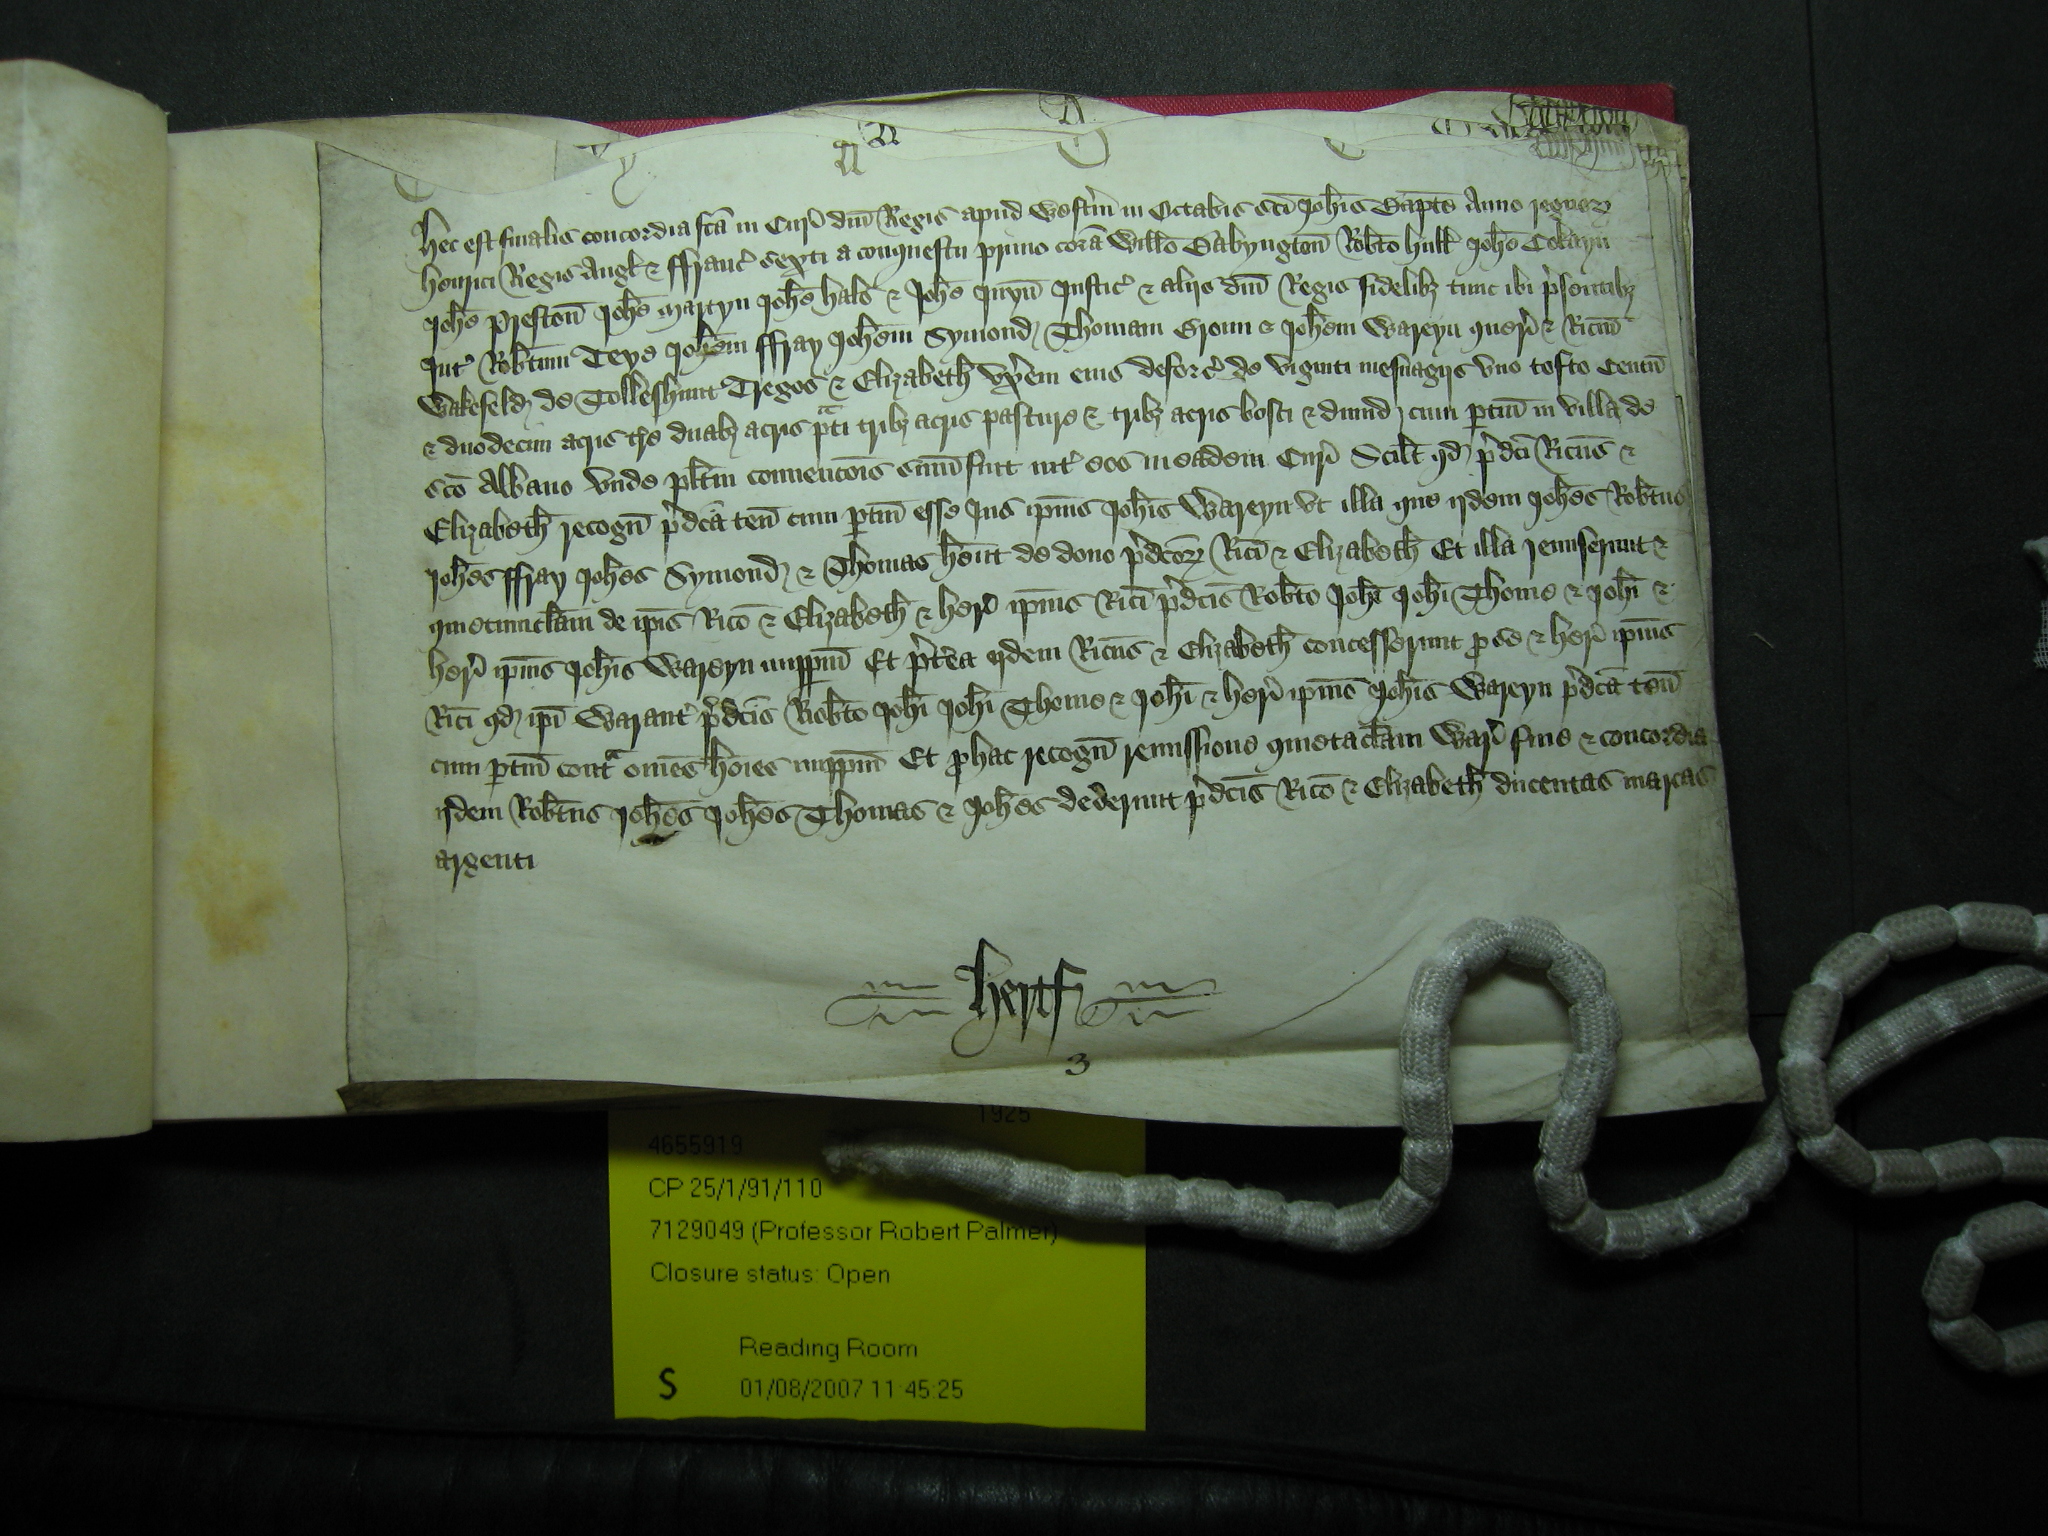 Hec est finalis concordia fcā in Cur̄ dn̄i Regis apud Westm̄ in Octabis sc̄i Joh̄is Bapt̄e Anno regnor̄
Henrici Regis Angl̄ & ffranc̄ sexti a conquestu primo corā Will̄o Babyngton̄ Rob̄to Hull̄ Joh̄e Cokayn
Joh̄e Preston̄ Joh̄e Martyn Joh̄e Hals & Joh̄e Juyn̄ Justic̄ & aliis dn̄i Regis fidelibȝ tunc ibi p̄sentibȝ
Int̄ Rob̄tum Teye Joh̄em ffray Joh̄em Symond Thomam & Joh̄em Wareyn quer̄ & Ric̄m
Wakefeld de Tolleshunt Tregos & Elizabeth̄ vx̄em eius deforc̄ de viginti mesuagiis vno tofto Centū
& duodecim acris t̄re duabȝ acris p̄ti tribȝ acris pasture & tribȝ acris bosci & dimid cum ptin̄ in villa de
sc̄o Albano vnde pl̄itm conuenc̄ois sum̄ fuit int̄ eos in eadem Cur̄ Scil̄t qd p̄dc̄i Ric̄us &
Elizabeth̄ recogn̄ p̄dc̄a ten̄ cum ptin̄ esse Jus ip̄ius Joh̄is Wareyn vt illa que iidem Joh̄es Rob̄tus
Joh̄es ffray Joh̄es Symond & Thomas h̄ent de dono p̄dc̄or̄ Ric̄i & Elizabeth̄ Et illa remiserunt &
quietumclam̄ de ip̄is Ric̄o & Elizabeth̄ & her̄ ip̄ius Ric̄i p̄dc̄is Rob̄to Joh̄i Joh̄i Thome & Joh̄i &
her̄ ip̄ius Joh̄is Wareyn imppm̄ Et p̄terea iidem Ric̄us & Elizabeth̄ concesserunt p se & her̄ ip̄ius
Ric̄i qd ip̄i Warant̄ p̄dc̄is Rob̄to Joh̄i Joh̄i Thome & Joh̄i & her̄ ip̄ius Joh̄is Wareyn p̄dc̄a ten̄
cum ptin̄ cont̄ om̄es hōies imppm̄ Et p hac recogn̄ remissione quietaclam̄ War̄ fine & concordia
iidem Rob̄tus Joh̄es Joh̄es Thomas & Joh̄es dederunt p̄dc̄is Ric̄o & Elizabeth̄ ducentas marcas
argenti
Hertf
3
1925
4655919
CP 25/1/91/110
7129049 (Professor Robert Palmer)
Closure status: Open
Reading Room
S 01/08/2007 11:45:25